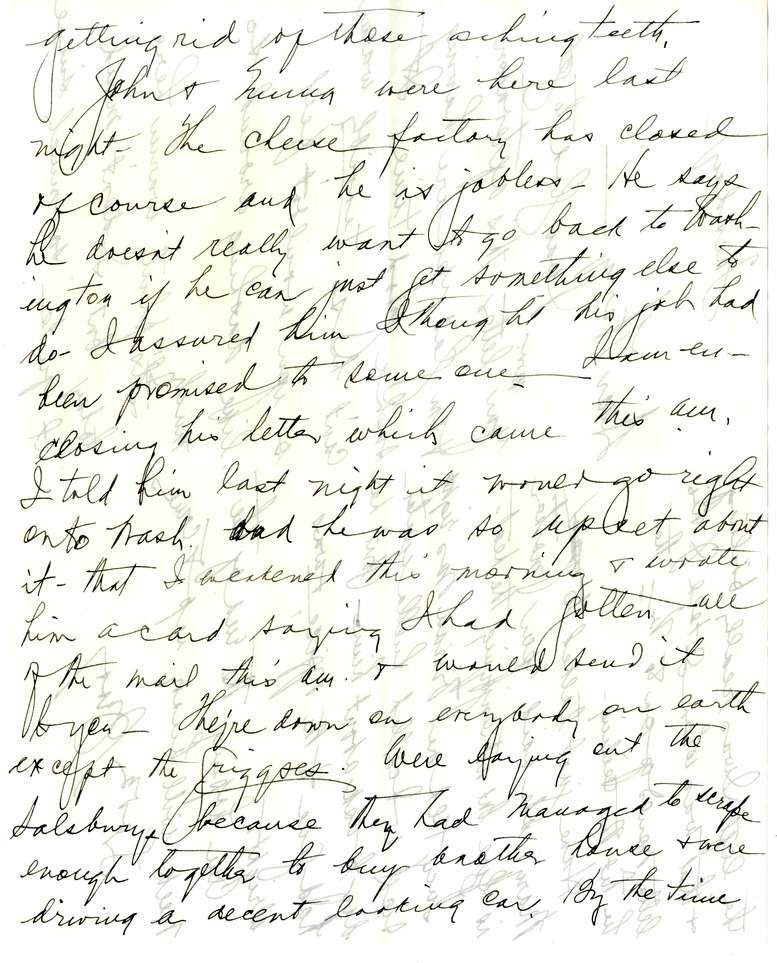 getting rid of those aching teeth.
John & Emma were here last
night - The cheese factory has closed
of course and he is jobless - He says
he doesn't really want to go back to Wash-
ington if he can just get something else to
do - I assured him I thought his job had
been promised to some one - I am en-
closing his letter which came this am.
I told him last night it would go right
onto Wash. and he was so upset about
it - that I weakened this morning & wrote
him a card saying I had gotten all
of the mail this am. & would send it
to you - They're down on everybody on earth
except the Griggses. Were laying out the
Salsburys because they had managed to scrape
enough together to buy another house & were
driving a decent looking car. By the time